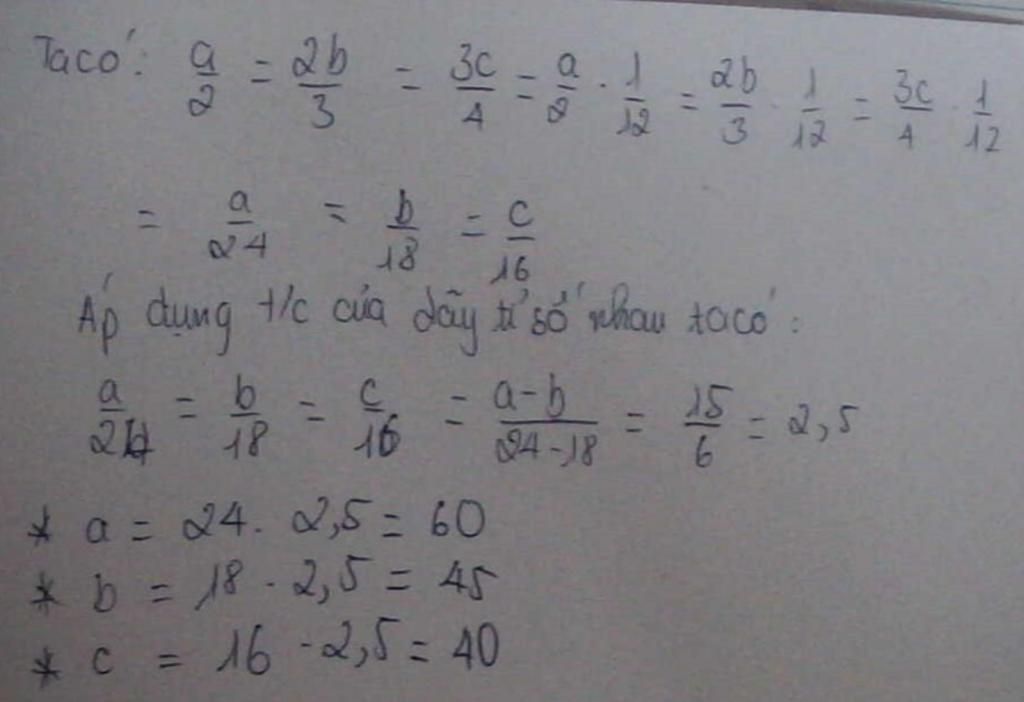 Ta có: a/2 = 2b/3 = 3c/4 = a/2 . 1/12 = 2b/3 . 1/12 = 3c/4 . 1/12
= a/24 = b/18 = c/16
Áp dụng t/c của dãy tỉ số nhau ta có :
a/24 = b/18 = c/16 = a-b/24-18 = 15/6 = 2,5
* a = 24 . 2,5 = 60
* b = 18 . 2,5 = 45
* c = 16 . 2,5 = 40